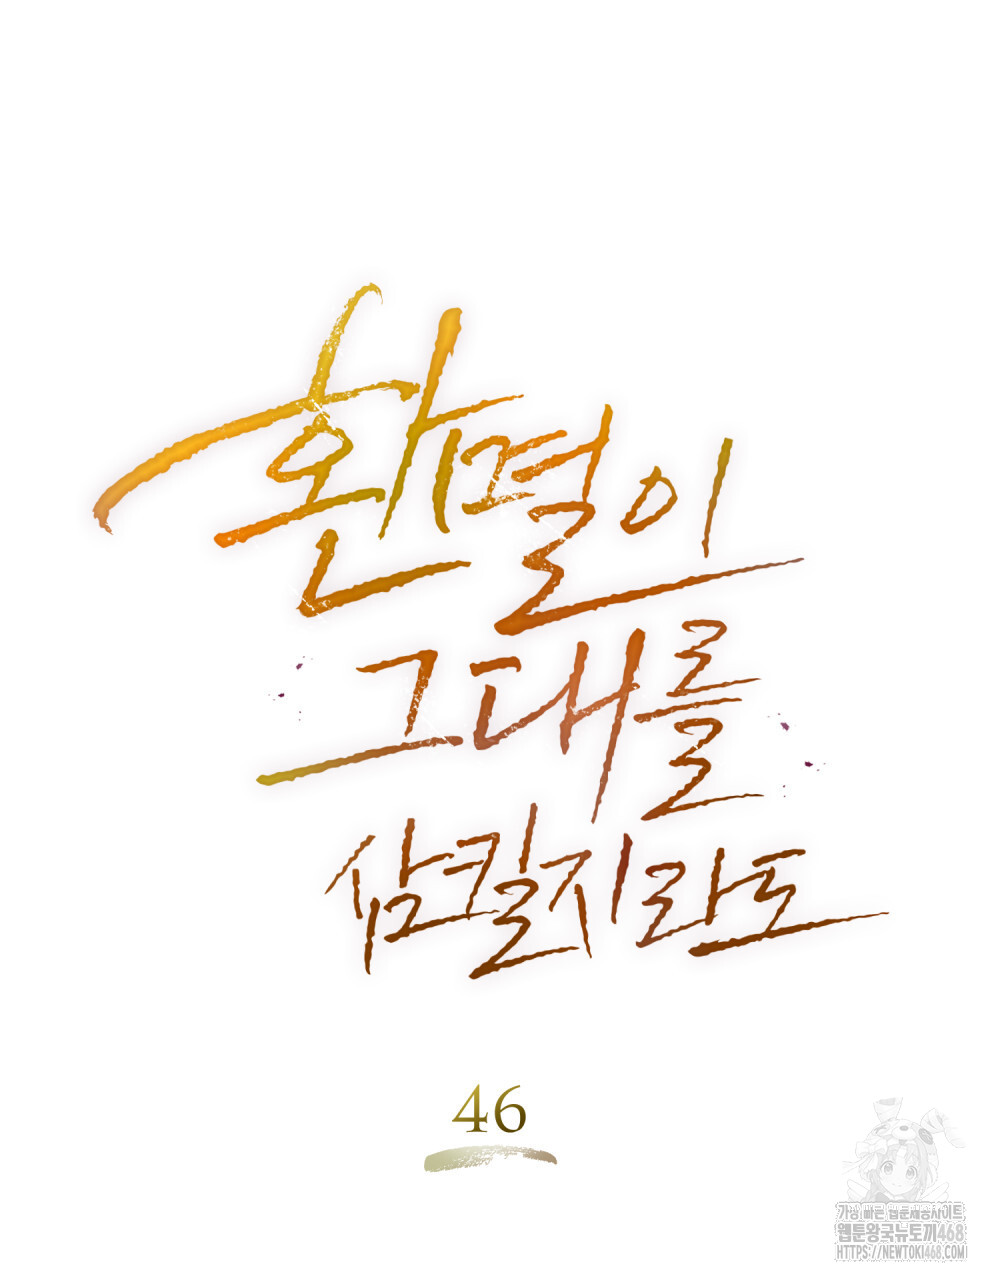 환멸이
그대를
삼킬지라도
46
가장 빠른 웹툰제공사이트
웹툰왕국뉴토끼468
HTTPS://NEWTOKI468.COM